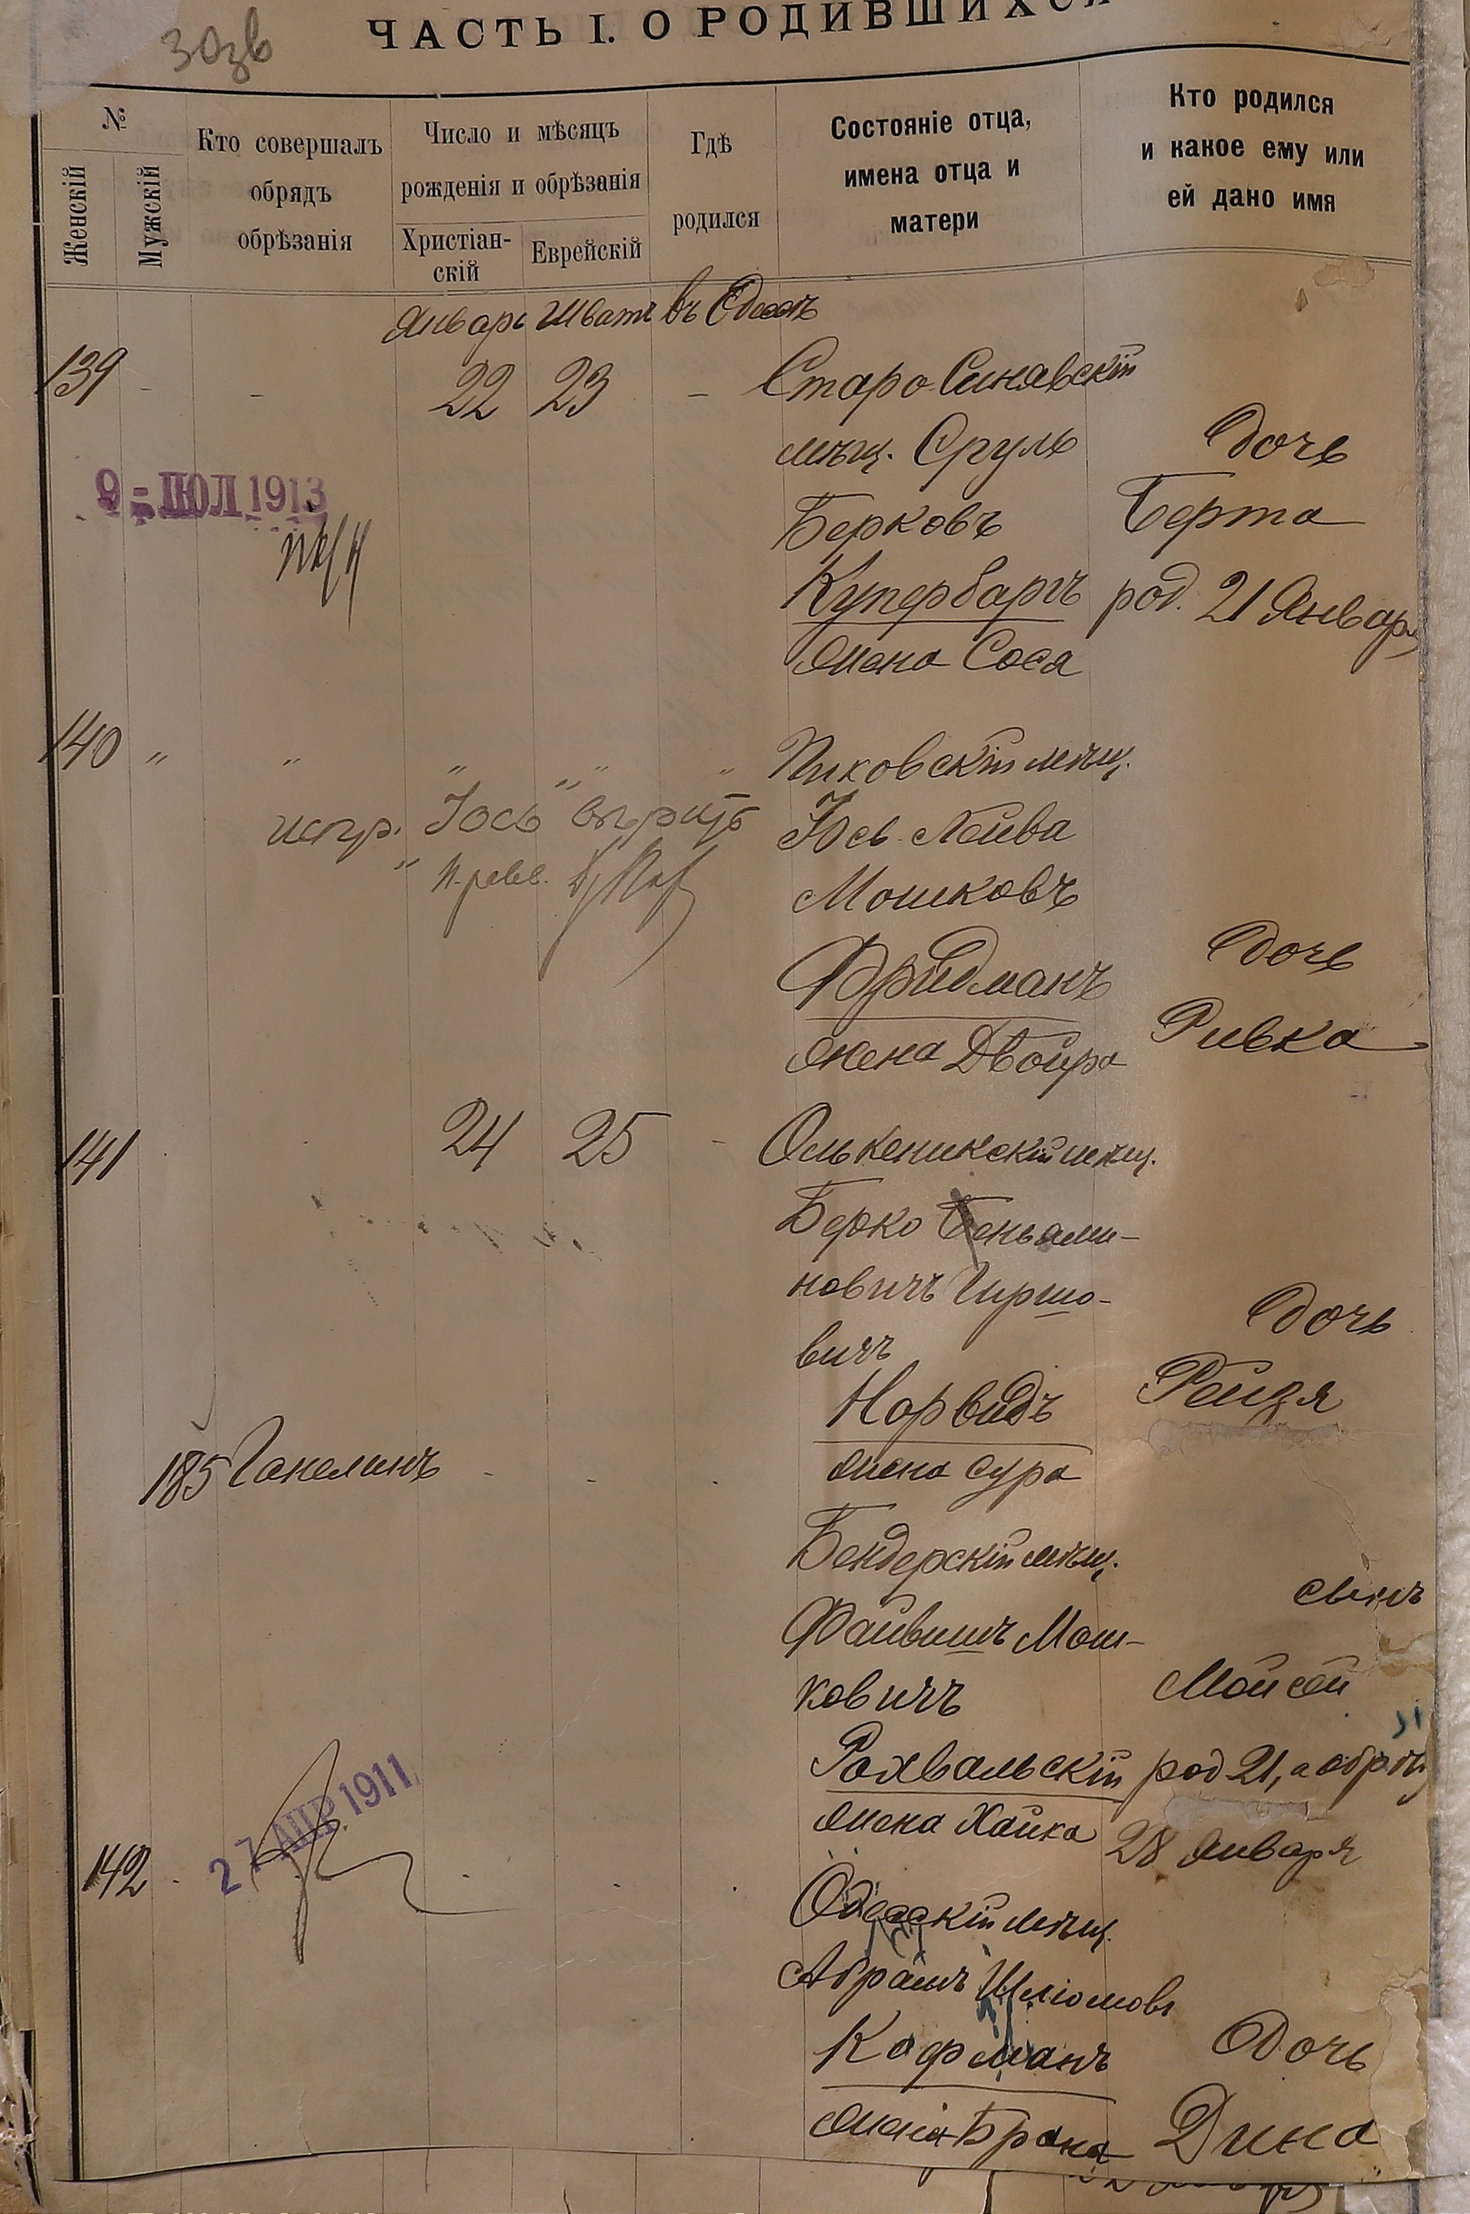 ЧАСТЬ I. О РОДИВШИХСЯ
303в
№
Женскій
Мужскій
Кто совершалъ
обрядъ
обрѣзанія
Число и мѣсяцъ
рожденія и обрѣзанія
Христіан-
скій
Еврейскій
Гдѣ
родился
Состояніе отца,
имена отца и
матери
Кто родился
и какое ему или
ей дано имя
Январь Шватъ въ Одессѣ
139 - - 22 23 - Старо-Синявскій
мѣщ. Сруль
Дочь
9 - ІЮЛ 1913
Берковъ
Берта
Купербаргъ
род. 21 Января
жена Сося
140 " " " " " " Пиковскій мѣщ.
испр. Іось вѣритъ
Іось-Лейва
Мошковъ
Фридманъ
Дочь
жена Двойра
Ривка
141 24 25 - Олькеникскій мѣщ.
Берко Беньями-
новичъ Гиршо-
вичъ
Дочь
Норвидъ
Рейзя
жена Сура
185 Ганелинъ - - -
Бендерскій мѣщ.
Файвишъ Мош-
ковичъ
сынъ
Мойсей
Рохвальскій
род 21, а обрѣз
жена Хайка
28 Января
27 АПР 1911
142 - - - -
Одесскій мѣщ.
Абрамъ Шліомовъ
Кофманъ
Дочь
жена Брана
Дина